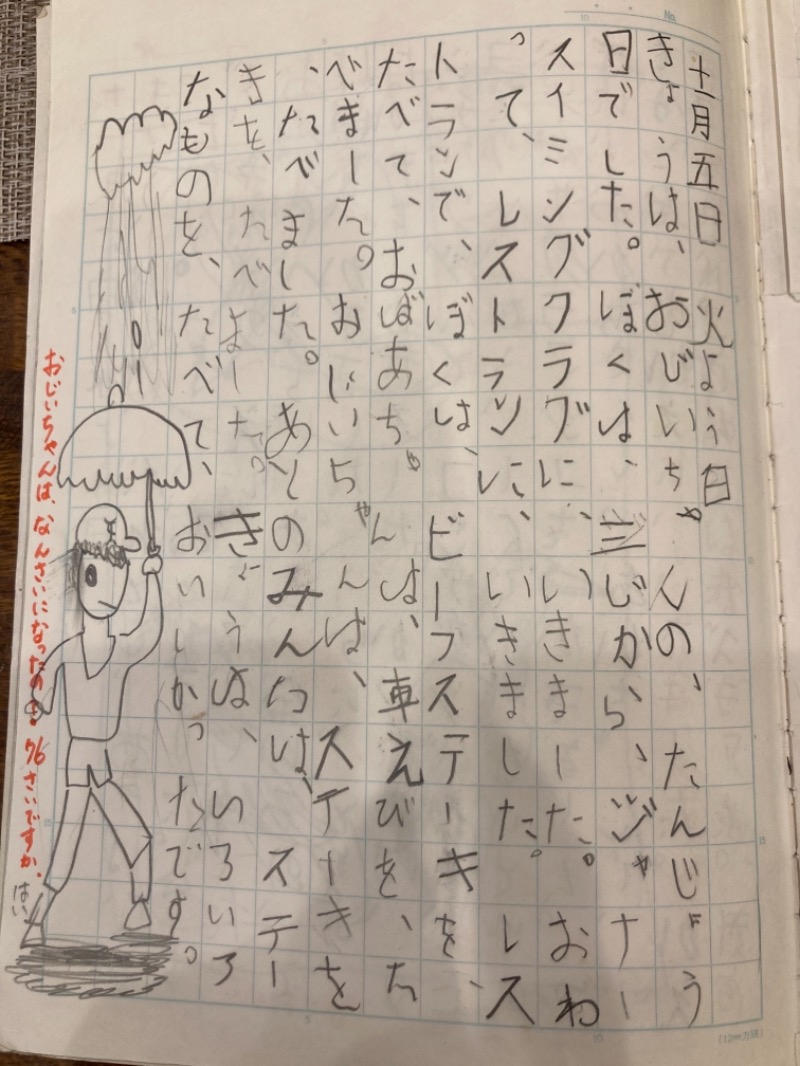 No.
十一月五日 火よう日
きょうは、おじいちゃんの、たんじょう
日でした。ぼくは、三じから、ジャナー
スイミングクラグに、いきました。おわ
って、レストランに、いきました。レス
トランで、ぼくは、ビーフステーキを、
たべて、おばあちゃんは、車えびを、た
べました。おじいちゃんは、ステーキを
、たべました。あとのみんなは、ステー
きを、たべました。きょうは、いろいろ
なものを、たべて、おいしかったです。
おじいちゃんは、なんさいになったの?76さいですか。
はい